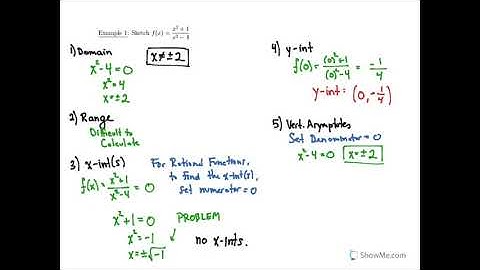 Example 1: Sketch f(x) = (x² + 1)/(x² − 4)
1) Domain
x ≠ ±2
x² - 4 = 0
x² = 4
x = ±2
2) Range
Difficult to
Calculate
3) x-int(s)
For Rational Functions,
to find the x-int(s),
set numerator = 0
f(x) = (x²+1)/(x²-4) = 0
x² + 1 = 0
PROBLEM
x² = -1
x = ±√-1
no x-ints.
4) y-int
f(0) = ((0)²+1)/((0)²-4) = -1/4
y-int: (0, -1/4)
5) Vert. Asymptotes
Set Denominator = 0
x² - 4 = 0
x = ±2
ShowMe.com